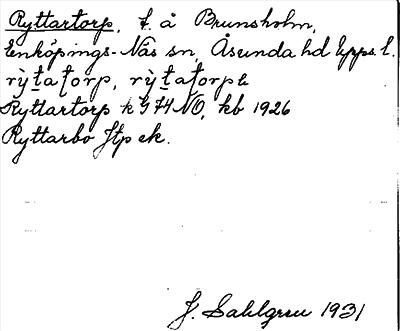 Ryttartorp, t. å Brunsholm,
Enköpings-Näs sn, Åsunda hd Upps. l.
rỳṯaṯorp, rỳṯaṯorp
Ryttartorp k 974 NO, kb 1926
Ryttarbo Jtp ek.
J. Sahlgren 1931